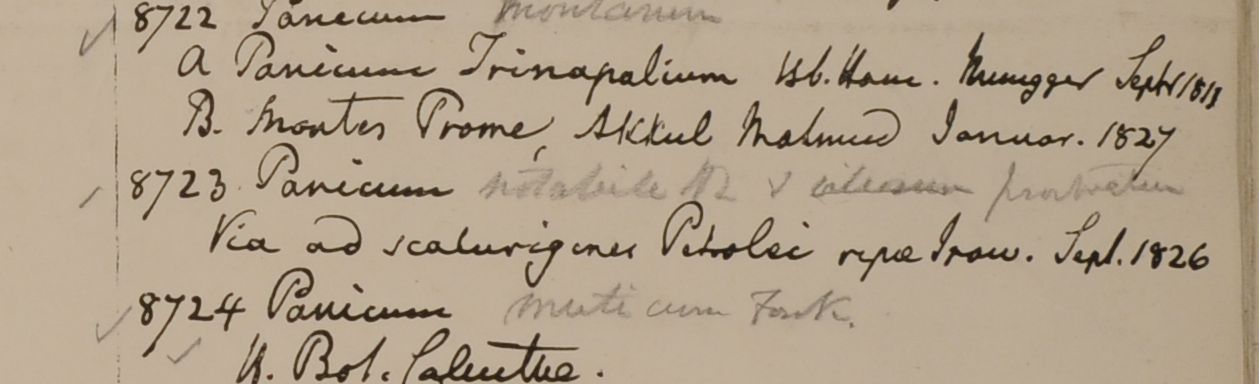 8722 Panicum montanum
A Panicum Trinapalium Hb. Ham. Mungger Septr 1811
B. Montes Prome, Akkul Mahmud Januar. 1827
8723 Panicum notabile prostratum
Via ad scaturigines Petrolei ripae Iraw. Sept. 1826
8724 Panicum muticum Forsk.
H. Bot. Calcuttae.